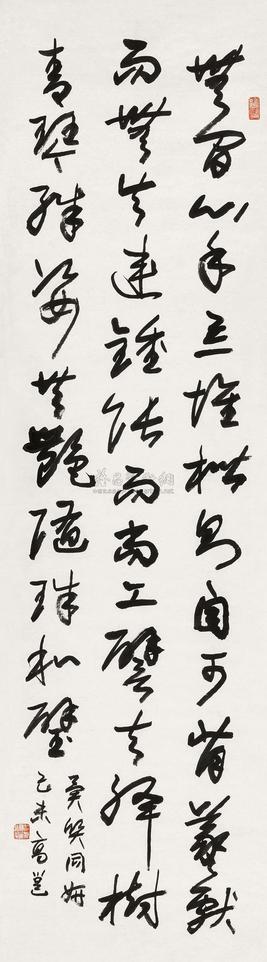 無間心手忘懷楷則自可背羲獻
而無失違鍾張而尚工譬夫絳樹
青琴殊姿共艷隨珠和璧
異質同妍
己未高邕